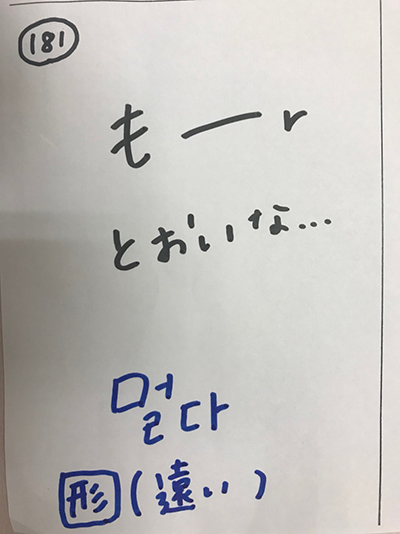 181
もーr
とおいな...
멀다
形(遠い)